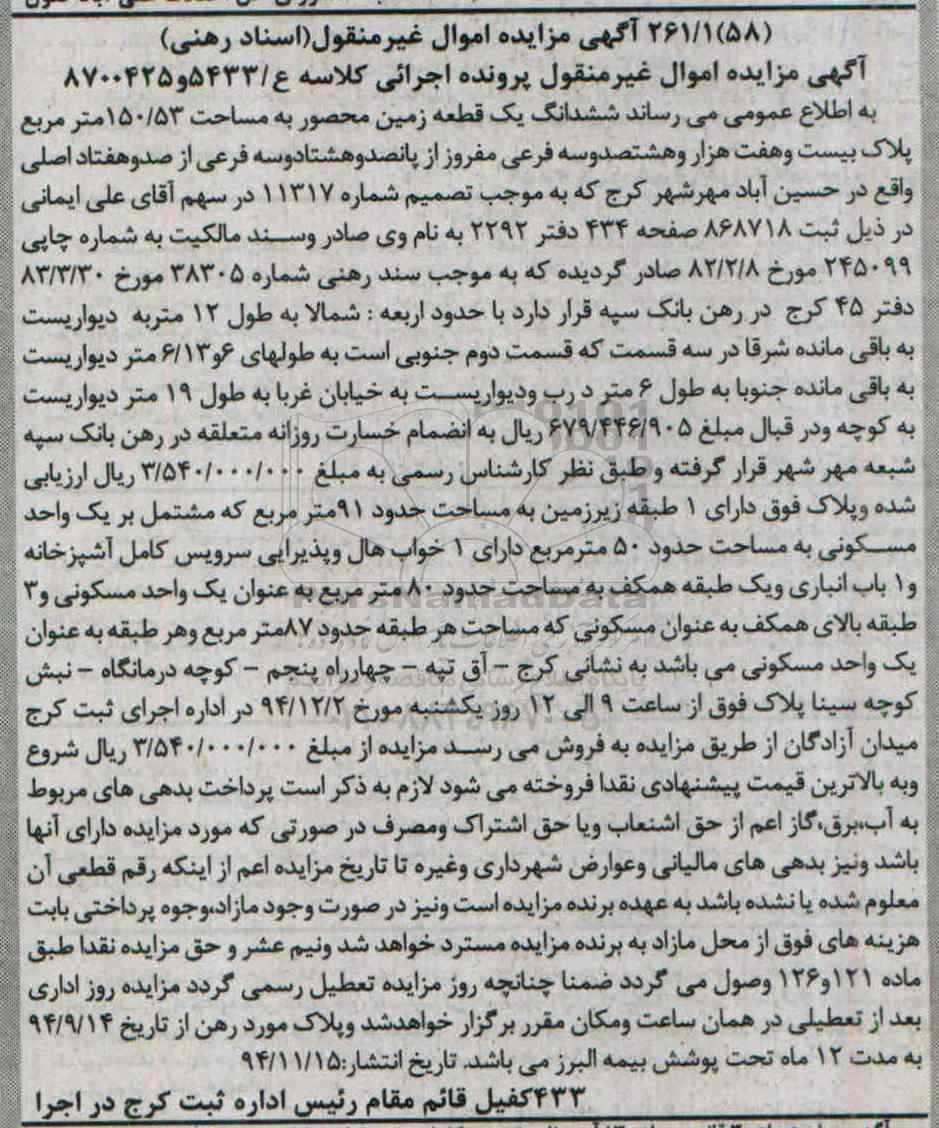 (۵۸)۲۶۱/۱ آگهی مزایده اموال غیرمنقول(اسناد رهنی)
آگهی مزایده اموال غیرمنقول پرونده اجرائی کلاسه ع/۵۴۳۳و۸۷۰۰۴۲۵
به اطلاع عمومی می رساند ششدانگ یک قطعه زمین محصور به مساحت ۱۵۰/۵۳متر مربع
پلاک بیست وهفت هزار وهشتصدوسه فرعی مفروز از پانصدوهشتادوسه فرعی از صدوهفتاد اصلی
واقع در حسین آباد مهرشهر کرج که به موجب تصمیم شماره ۱۱۳۱۷ در سهم آقای علی ایمانی
در ذیل ثبت ۸۶۸۷۱۸ صفحه ۴۳۴ دفتر ۲۲۹۲ به نام وی صادر وسند مالکیت به شماره چاپی
۲۴۵۰۹۹ مورخ ۸۲/۲/۸ صادر گردیده که به موجب سند رهنی شماره ۳۸۳۰۵ مورخ ۸۳/۳/۳۰
دفتر ۴۵ کرج در رهن بانک سپه قرار دارد با حدود اربعه : شمالا به طول ۱۲ متربه دیواریست
به باقی مانده شرقا در سه قسمت که قسمت دوم جنوبی است به طولهای ۶و۶/۱۳ متر دیواریست
به باقی مانده جنوبا به طول ۶ متر د رب ودیواریست به خیابان غربا به طول ۱۹ متر دیواریست
به کوچه ودر قبال مبلغ ۶۷۹/۴۴۶/۹۰۵ ریال به انضمام خسارت روزانه متعلقه در رهن بانک سپه
شبعه مهر شهر قرار گرفته و طبق نظر کارشناس رسمی به مبلغ ۳/۵۴۰/۰۰۰/۰۰۰ ریال ارزیابی
شده وپلاک فوق دارای ۱ طبقه زیرزمین به مساحت حدود ۹۱متر مربع که مشتمل بر یک واحد
مسکونی به مساحت حدود ۵۰ مترمربع دارای ۱ خواب هال وپذیرایی سرویس کامل آشپزخانه
و۱ باب انباری ویک طبقه همکف به مساحت حدود ۸۰ متر مربع به عنوان یک واحد مسکونی و۳
طبقه بالای همکف به عنوان مسکونی که مساحت هر طبقه حدود ۸۷متر مربع وهر طبقه به عنوان
یک واحد مسکونی می باشد به نشانی کرج – آق تپه – چهارراه پنجم – کوچه درمانگاه – نبش
کوچه سینا پلاک فوق از ساعت ۹ الی ۱۲ روز یکشنبه مورخ ۹۴/۱۲/۲ در اداره اجرای ثبت کرج
میدان آزادگان از طریق مزایده به فروش می رسد مزایده از مبلغ ۳/۵۴۰/۰۰۰/۰۰۰ ریال شروع
وبه بالاترین قیمت پیشنهادی نقدا فروخته می شود لازم به ذکر است پرداخت بدهی های مربوط
به آب،برق،گاز اعم از حق اشنعاب ویا حق اشتراک ومصرف در صورتی که مورد مزایده دارای آنها
باشد ونیز بدهی های مالیاتی وعوارض شهرداری وغیره تا تاریخ مزایده اعم از اینکه رقم قطعی آن
معلوم شده یا نشده باشد به عهده برنده مزایده است ونیز در صورت وجود مازاد،وجوه پرداختی بابت
هزینه های فوق از محل مازاد به برنده مزایده مسترد خواهد شد ونیم عشر و حق مزایده نقدا طبق
ماده ۱۲۱و۱۲۶ وصول می گردد ضمنا چنانچه روز مزایده تعطیل رسمی گردد مزایده روز اداری
بعد از تعطیلی در همان ساعت ومکان مقرر برگزار خواهدشد وپلاک مورد رهن از تاریخ ۹۴/۹/۱۴
به مدت ۱۲ ماه تحت پوشش بیمه البرز می باشد. تاریخ انتشار:۹۴/۱۱/۱۵
۴۳۳کفیل قائم مقام رئیس اداره ثبت کرج در اجرا